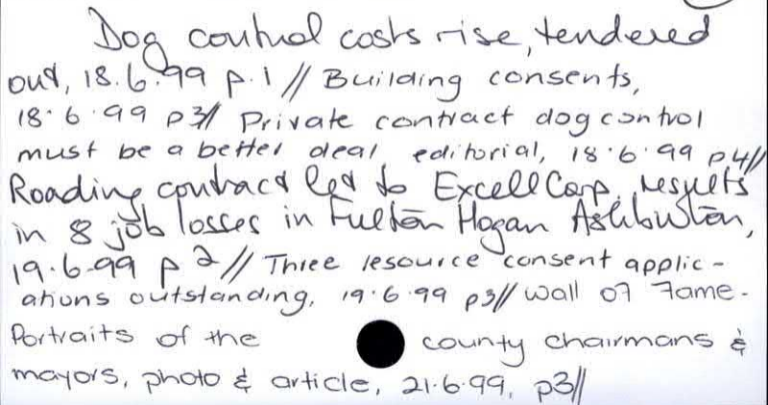 Dog control costs rise, tendered
out, 18.6.99 p.1 // Building consents,
18.6.99 p3// Private contract dog control
must be a better deal editorial, 18.6.99 p4//
Roading contract led to Excell Corp. results
in 8 job losses in Fulton Hogan Ashburton,
19.6.99 p2// Three resource consent applic-
ations outstanding, 19.6.99 p3// Wall of Fame.
Portraits of the county chairmans &
mayors, photo & article, 21.6.99, p3//